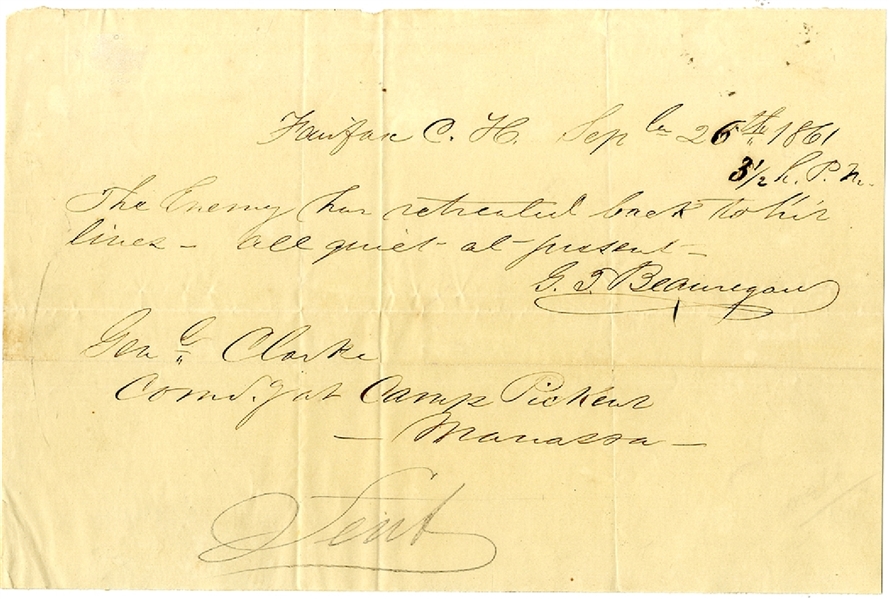 Fairfax C. H. Sepber 26th 1861
3 1/2 h. P. M.
The Enemy has retreated back to their
lines - all quiet at present -
G. T. Beauregard
Genl Clarke
Comd.g at Camp Pickens
- Manassa -
Sent